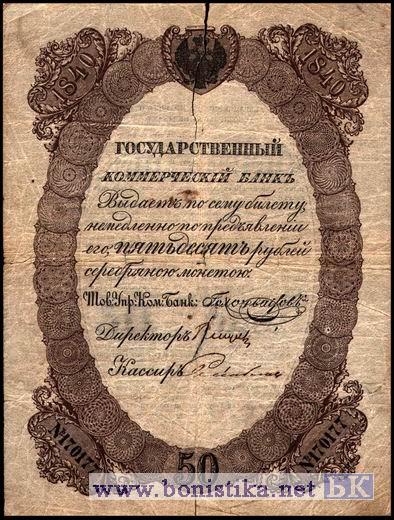 1840 1840
ГОСУДАРСТВЕННЫЙ
КОММЕРЧЕСКІЙ БАНКЪ
Выдаетъ по сему билету,
немедленно по предъявленіи
его, пятьдесятъ рублей
серебряною монетою.
Тов: Упр: Ком: Банк:
Директоръ
Кассиръ
№170177 50 №170177
www.bonistika.net БК